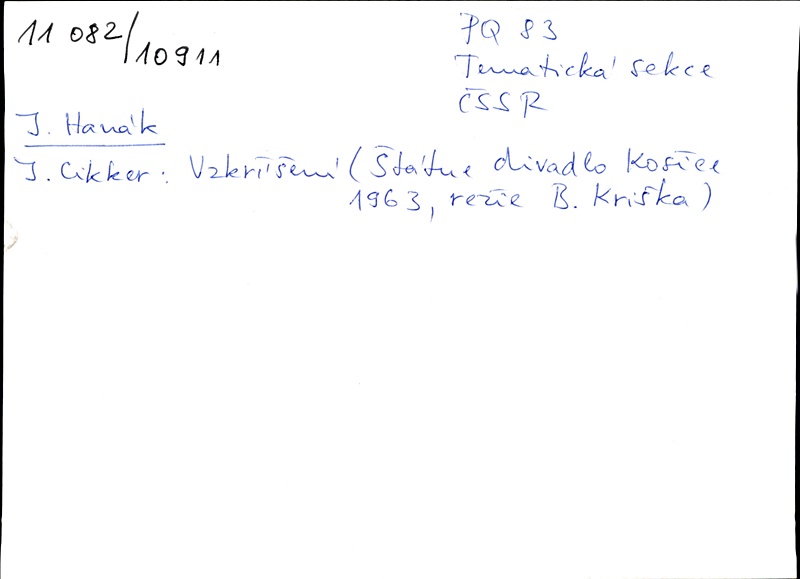 11 082/10911
PQ 83
Tematická sekce
ČSSR
J. Hanák
J. Cikker: Vzkříšení (Štátne divadlo Košice
1963, režie B. Kriška)